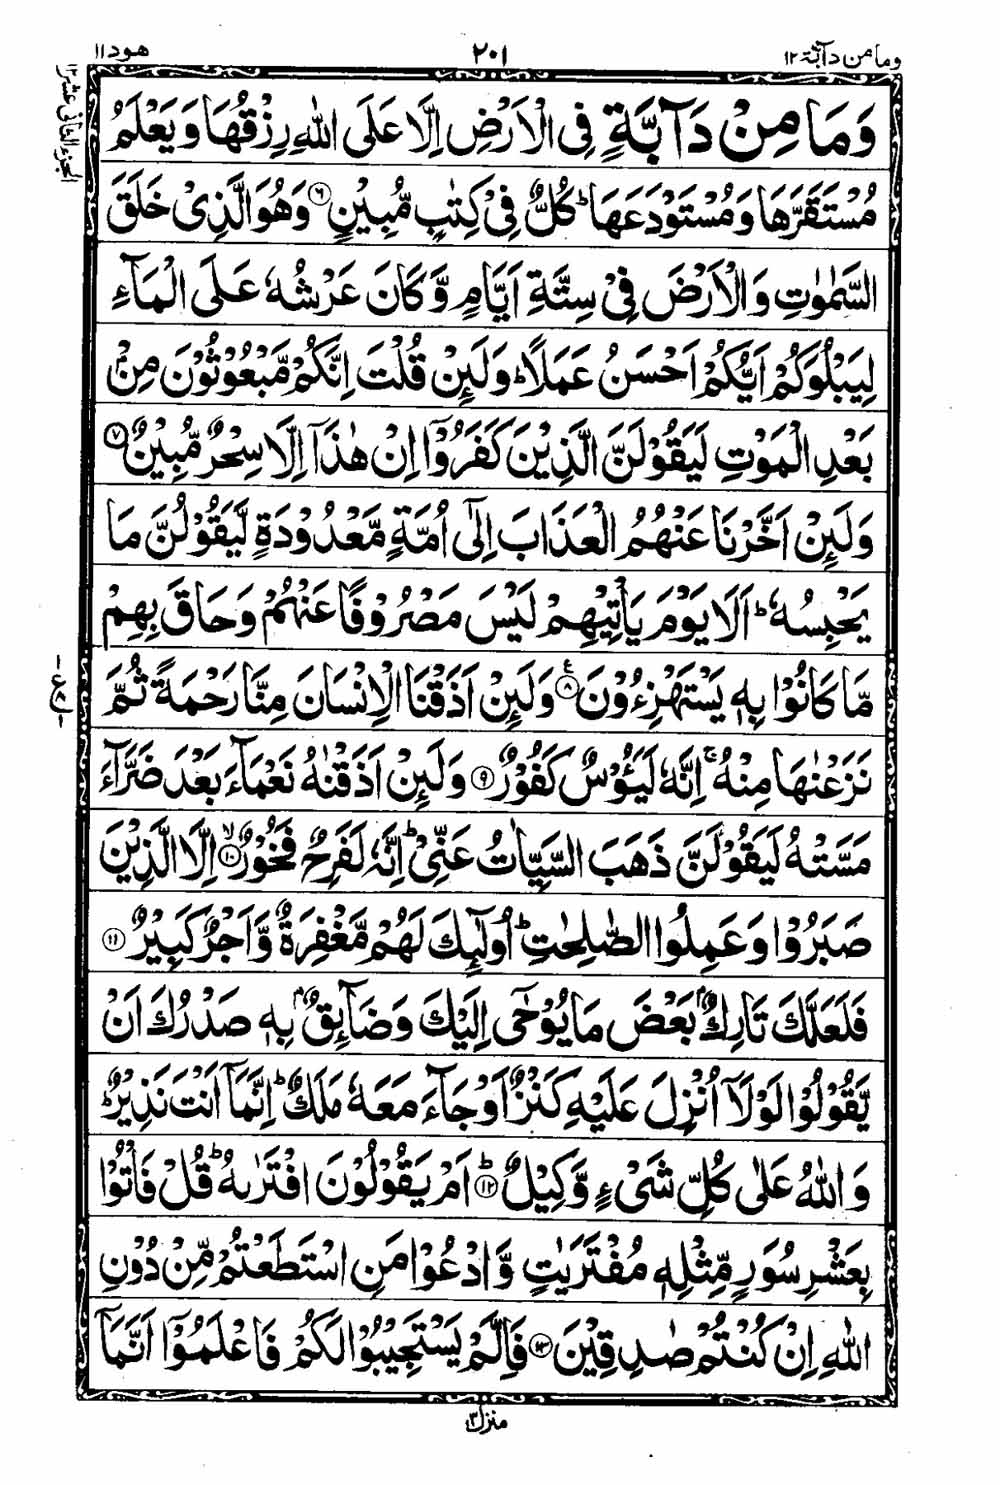 وما من دآبة ١٢
٢٠١
هود ١١
الجزء الثاني عشر ١٢
وَمَا مِنْ دَآبَّةٍ فِى الْاَرْضِ اِلَّا عَلَى اللّٰهِ رِزْقُهَا وَيَعْلَمُ
مُسْتَقَرَّهَا وَمُسْتَوْدَعَهَا ؕ كُلٌّ فِىْ كِتٰبٍ مُّبِيْنٍ ۟۶ وَهُوَ الَّذِىْ خَلَقَ
السَّمٰوٰتِ وَالْاَرْضَ فِىْ سِتَّةِ اَيَّامٍ وَّكَانَ عَرْشُهٗ عَلَى الْمَآءِ
لِيَبْلُوَكُمْ اَيُّكُمْ اَحْسَنُ عَمَلًا ؕ وَلَئِنْ قُلْتَ اِنَّكُمْ مَّبْعُوْثُوْنَ مِنْۢ
بَعْدِ الْمَوْتِ لَيَقُوْلَنَّ الَّذِيْنَ كَفَرُوْۤا اِنْ هٰذَآ اِلَّا سِحْرٌ مُّبِيْنٌ ۷
وَلَئِنْ اَخَّرْنَا عَنْهُمُ الْعَذَابَ اِلٰٓى اُمَّةٍ مَّعْدُوْدَةٍ لَّيَقُوْلُنَّ مَا
يَحْبِسُهٗ ؕ اَلَا يَوْمَ يَاْتِيْهِمْ لَيْسَ مَصْرُوْفًا عَنْهُمْ وَحَاقَ بِهِمْ
مَّا كَانُوْا بِهٖ يَسْتَهْزِءُوْنَ ۸ وَلَئِنْ اَذَقْنَا الْاِنْسَانَ مِنَّا رَحْمَةً ثُمَّ
نَزَعْنٰهَا مِنْهُ ۚ اِنَّهٗ لَيَـُٔوْسٌ كَفُوْرٌ ۹ وَلَئِنْ اَذَقْنٰهُ نَعْمَآءَ بَعْدَ ضَرَّآءَ
مَسَّتْهُ لَيَقُوْلَنَّ ذَهَبَ السَّيِّاٰتُ عَنِّىْ ؕ اِنَّهٗ لَفَرِحٌ فَخُوْرٌ ۙ۱۰ اِلَّا الَّذِيْنَ
صَبَرُوْا وَعَمِلُوا الصّٰلِحٰتِ ؕ اُولٰٓئِكَ لَهُمْ مَّغْفِرَةٌ وَّاَجْرٌ كَبِيْرٌ ۱۱
فَلَعَلَّكَ تَارِكٌۢ بَعْضَ مَا يُوْحٰٓى اِلَيْكَ وَضَآئِقٌۢ بِهٖ صَدْرُكَ اَنْ
يَّقُوْلُوْا لَوْلَآ اُنْزِلَ عَلَيْهِ كَنْزٌ اَوْ جَآءَ مَعَهٗ مَلَكٌ ؕ اِنَّمَآ اَنْتَ نَذِيْرٌ ؕ
وَاللّٰهُ عَلٰى كُلِّ شَىْءٍ وَّكِيْلٌ ؕ۱۲ اَمْ يَقُوْلُوْنَ افْتَرٰىهُ ؕ قُلْ فَاْتُوْا
بِعَشْرِ سُوَرٍ مِّثْلِهٖ مُفْتَرَيٰتٍ وَّادْعُوْا مَنِ اسْتَطَعْتُمْ مِّنْ دُوْنِ
اللّٰهِ اِنْ كُنْتُمْ صٰدِقِيْنَ ۱۳ فَاِلَّمْ يَسْتَجِيْبُوْا لَكُمْ فَاعْلَمُوْٓا اَنَّمَآ
منزل ٣